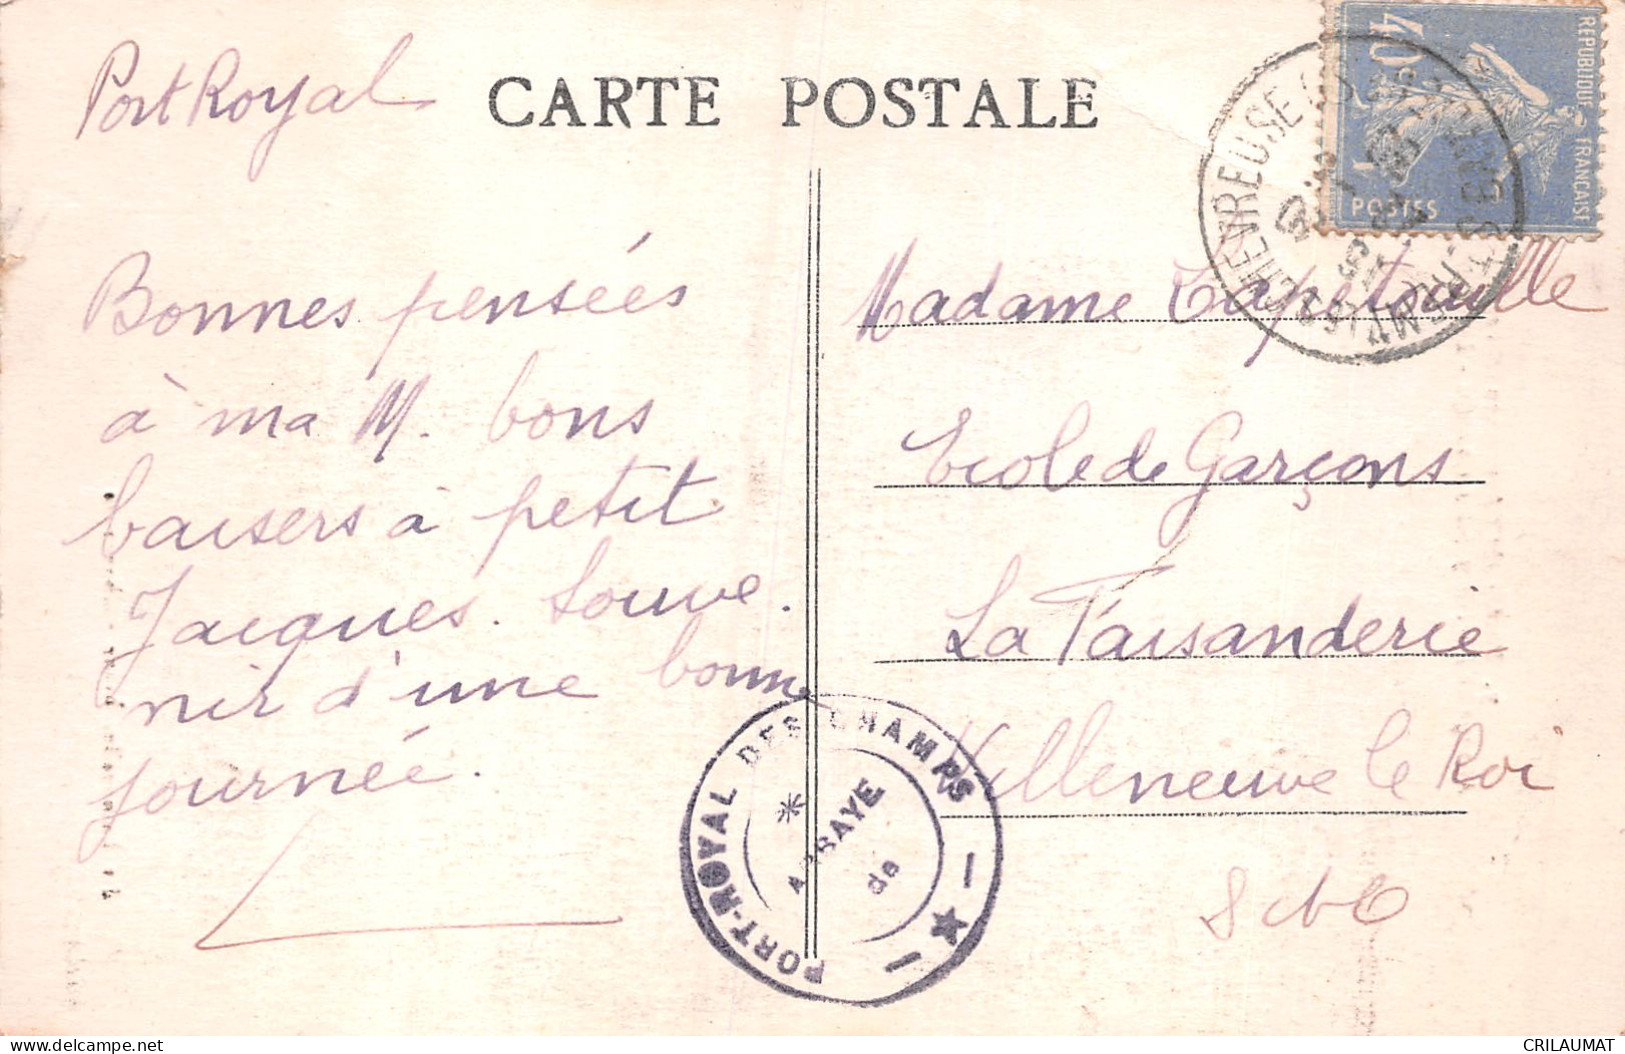 Port Royal
CARTE POSTALE
REPUBLIQUE FRANÇAISE
40
POSTES
CHEVREUSE
Bonnes pensées
à ma M. bons
baisers à petit
Jacques. Souve.
nir d'une bonne
journée.
Madame
Ecole de Garçons
La Faisanderie
Villeneuve le Roi
S et O
PORT-ROYAL DES CHAMPS
ABBAYE
de
delcampe.net
CRILAUMAT